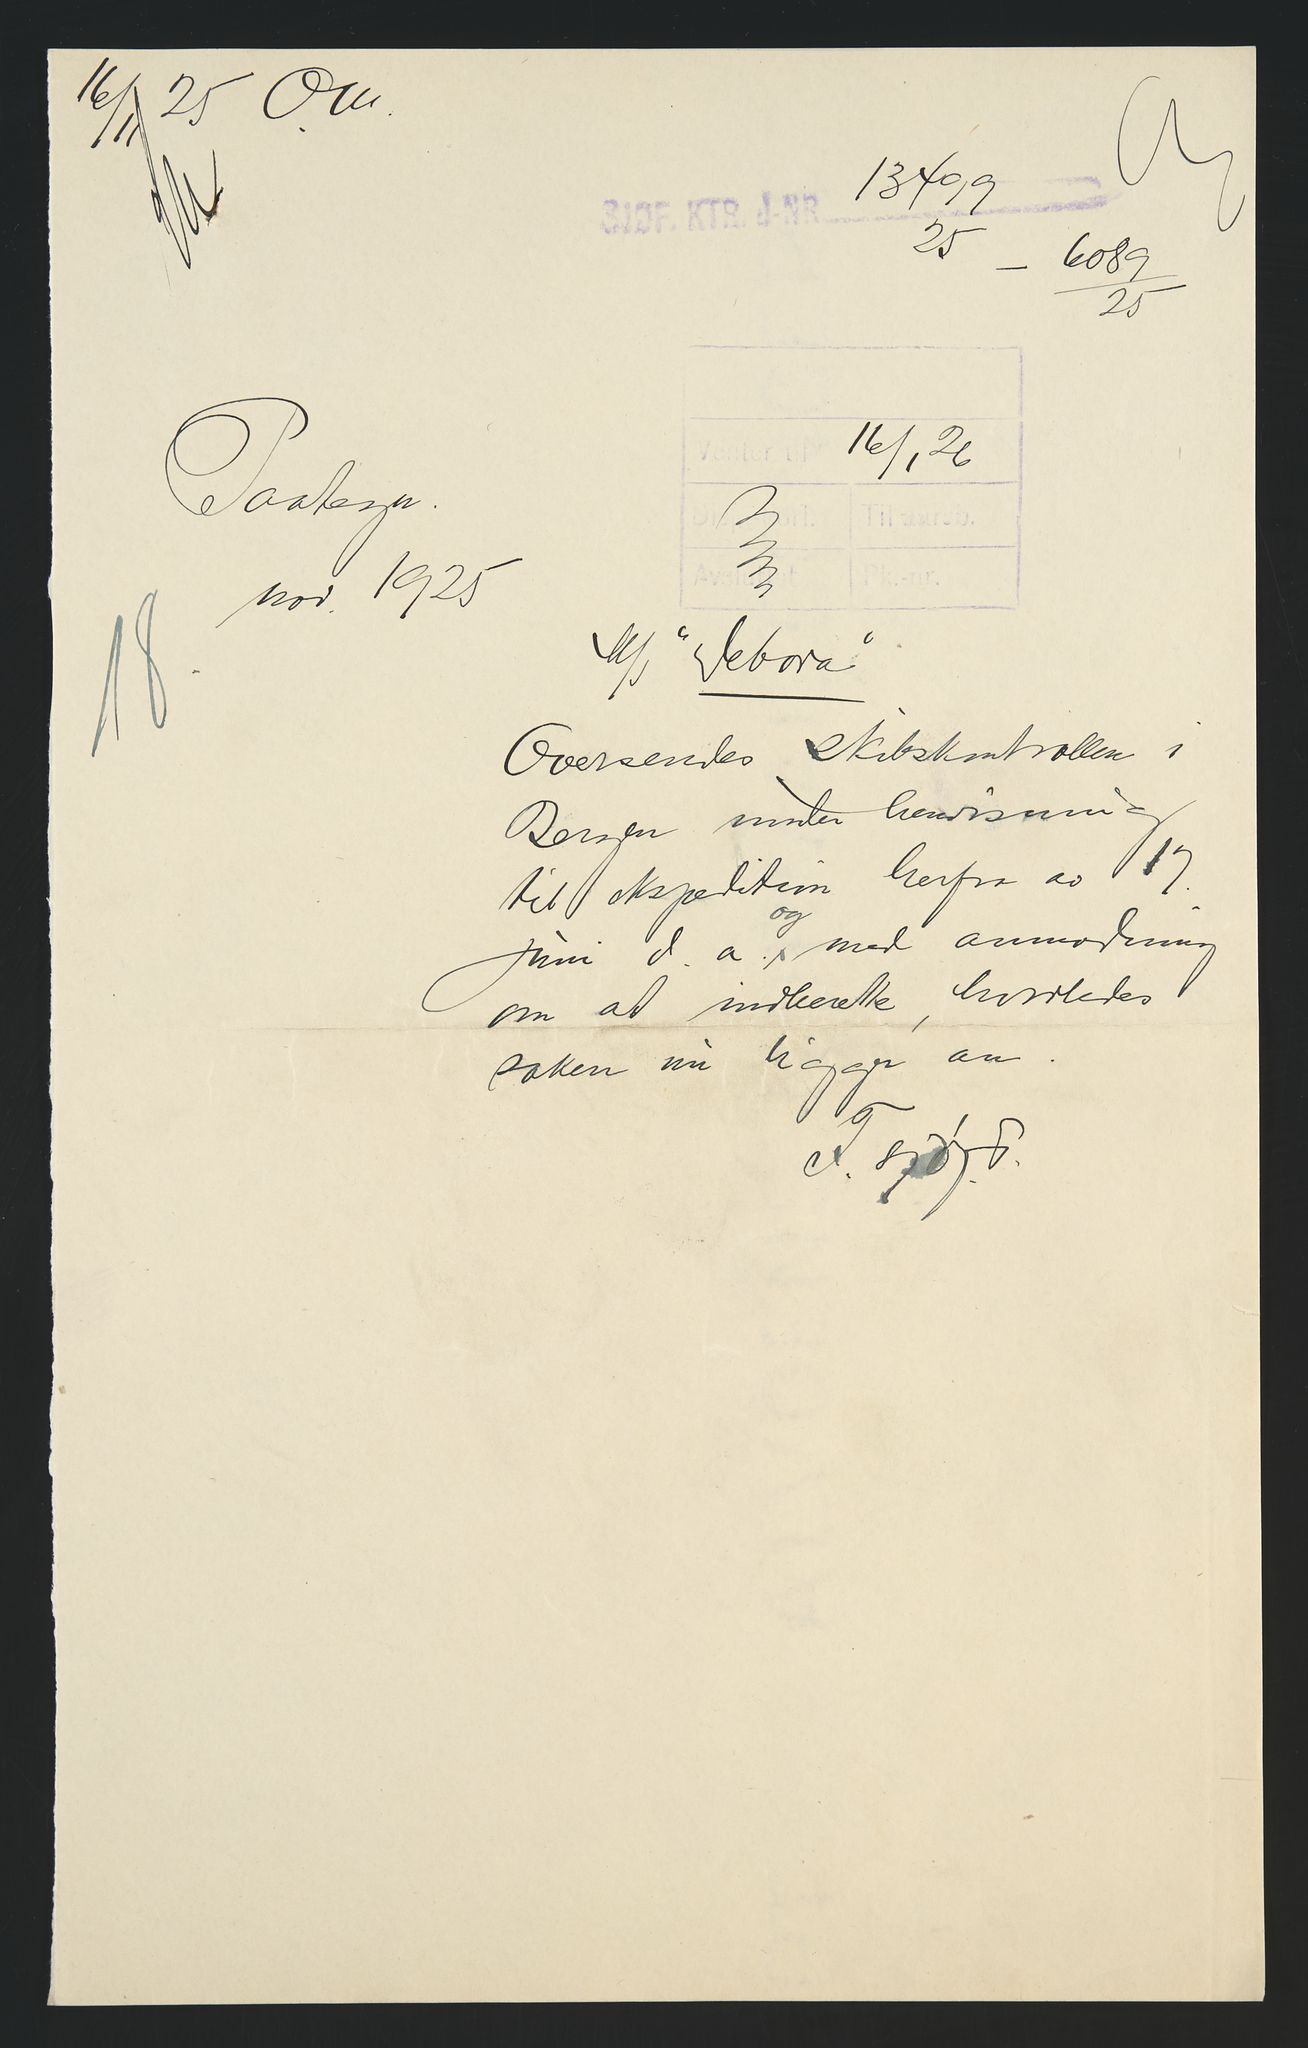 16/11 25 O.M.
SJØF. KTR. J-NR 13499
25 — 6089
25
Venter til 16/1 26
Til aarsb.
Avsluttet Pk.-nr.
Paategn.
nov. 1925
18.
M/S "Debora"
Oversendes skibskontrollen i
Bergen under henvisning
til ekspedition herfra av 17.
juni d. a. og med anmodning
om at indberette, hvorledes
saken nu ligger an.
F. sjøf. d.